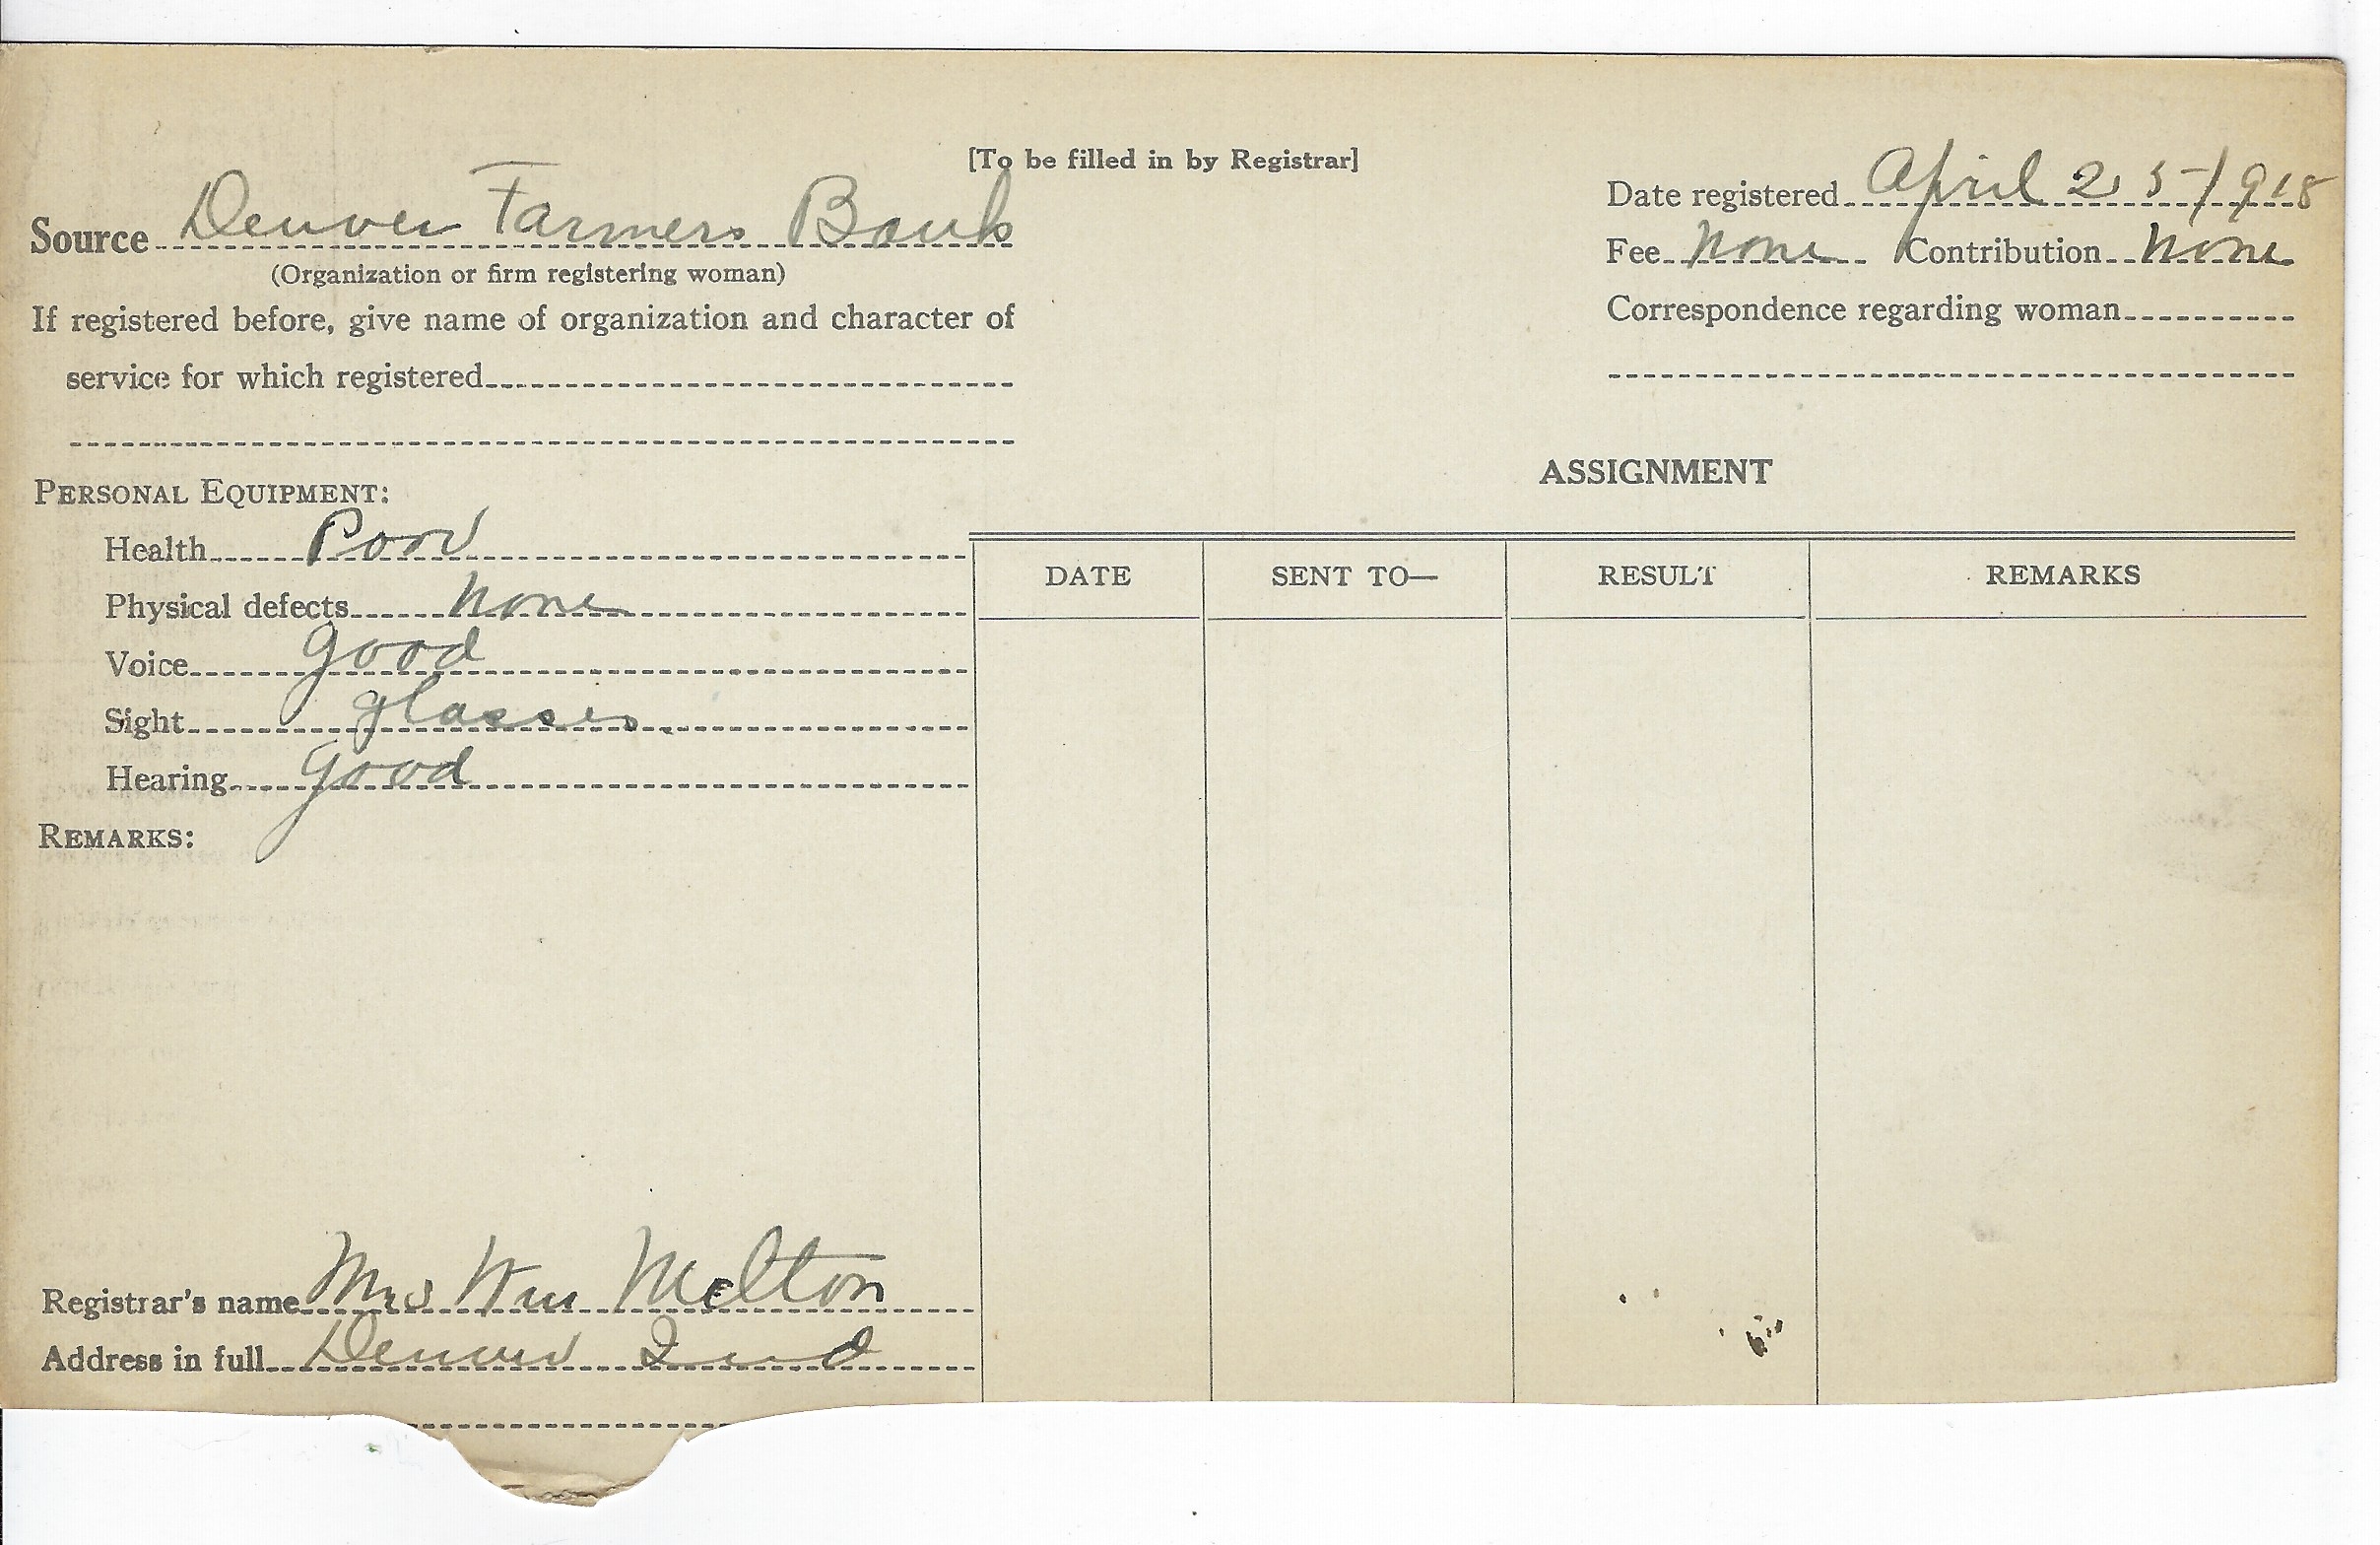 [To be filled in by Registrar]
Source Denver Farmers Bank
(Organization or firm registering woman)
If registered before, give name of organization and character of
service for which registered
Date registered April 25-1918
Fee none Contribution none
Correspondence regarding woman
PERSONAL EQUIPMENT:
Health Poor
Physical defects none
Voice good
Sight glasses
Hearing good
REMARKS:
Registrar's name Mrs Wm Melton
Address in full Denver Ind
ASSIGNMENT
DATE SENT TO— RESULT REMARKS